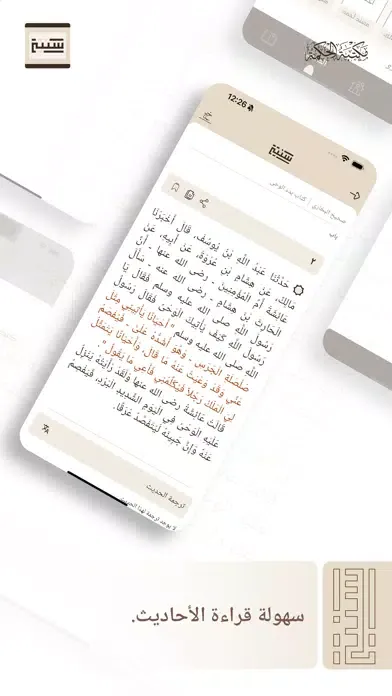 سنية
مكتبة الحكمة
12:26
سنية
صحيح البخاري / كتاب بدء الوحى
باب
٢
حَدَّثَنَا عَبْدُ اللَّهِ بْنُ يُوسُفَ، قَالَ أَخْبَرَنَا
مَالِكٌ، عَنْ هِشَامِ بْنِ عُرْوَةَ، عَنْ أَبِيهِ، عَنْ
عَائِشَةَ أُمِّ الْمُؤْمِنِينَ ـ رضى الله عنها ـ أَنَّ
الْحَارِثَ بْنَ هِشَامٍ ـ رضى الله عنه ـ سَأَلَ
رَسُولَ اللَّهِ صلى الله عليه وسلم فَقَالَ يَا
رَسُولَ اللَّهِ كَيْفَ يَأْتِيكَ الْوَحْىُ فَقَالَ رَسُولُ
اللَّهِ صلى الله عليه وسلم " أَحْيَانًا يَأْتِينِي مِثْلَ
صَلْصَلَةِ الْجَرَسِ ـ وَهُوَ أَشَدُّهُ عَلَىَّ ـ فَيُفْصَمُ
عَنِّي وَقَدْ وَعَيْتُ عَنْهُ مَا قَالَ، وَأَحْيَانًا يَتَمَثَّلُ
لِيَ الْمَلَكُ رَجُلاً فَيُكَلِّمُنِي فَأَعِي مَا يَقُولُ ".
قَالَتْ عَائِشَةُ رضى الله عنها وَلَقَدْ رَأَيْتُهُ يَنْزِلُ
عَلَيْهِ الْوَحْىُ فِي الْيَوْمِ الشَّدِيدِ الْبَرْدِ، فَيَفْصِمُ
عَنْهُ وَإِنَّ جَبِينَهُ لَيَتَفَصَّدُ عَرَقًا.
ترجمة الحديث
لا يوجد ترجمة لهذا الحديث
سهولة قراءة الأحاديث.